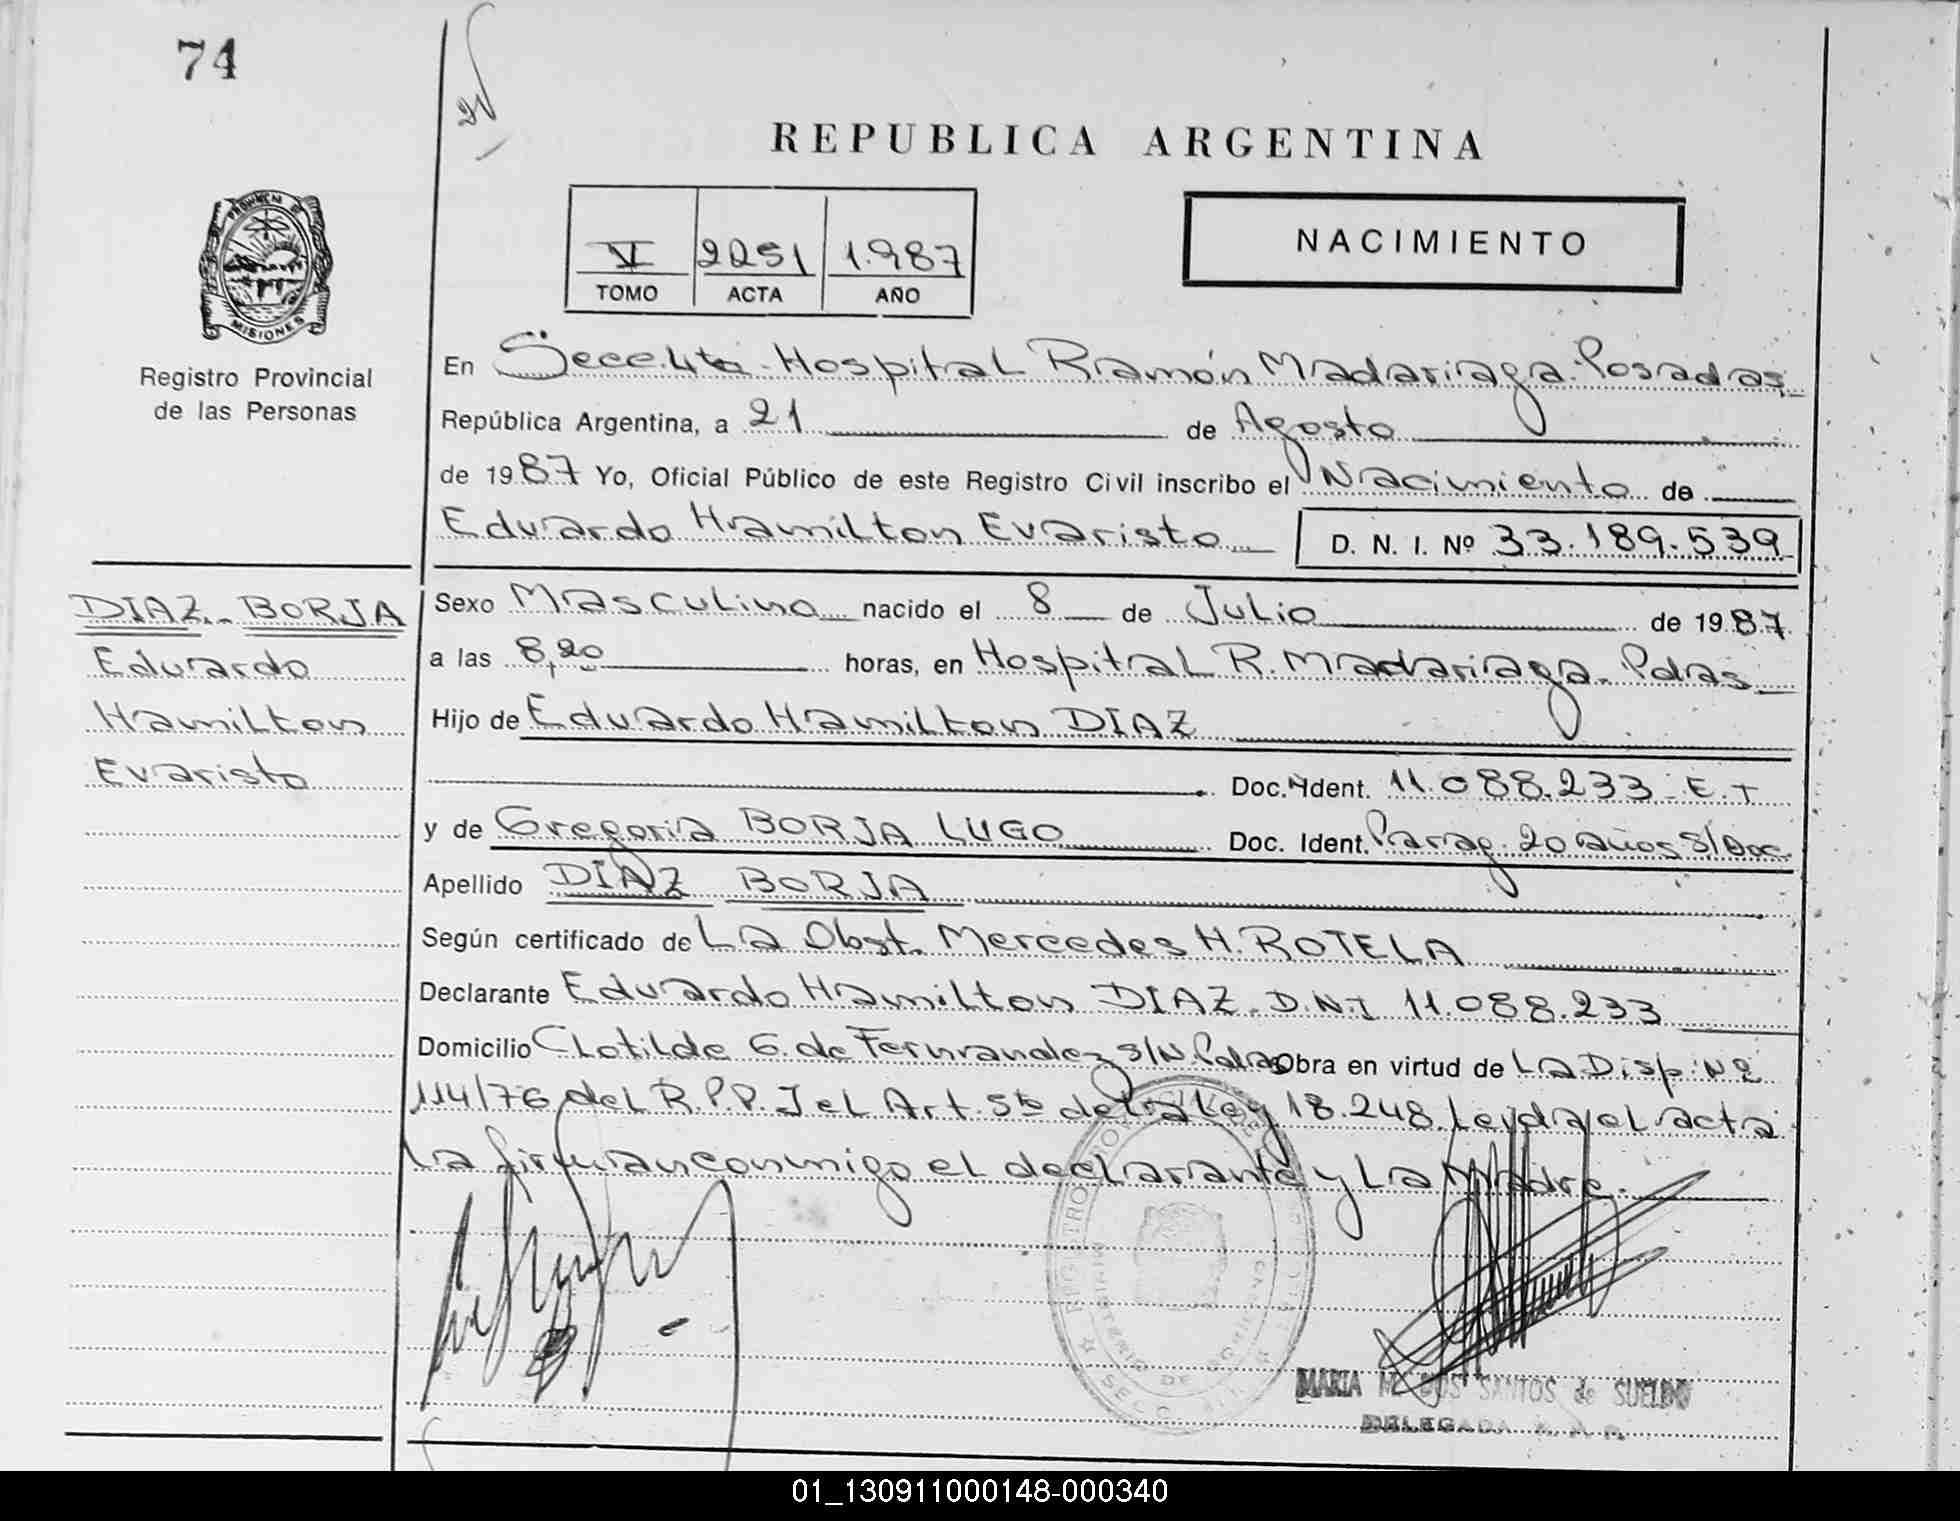 74
REPUBLICA ARGENTINA
PROVINCIA DE
MISIONES
Registro Provincial
de las Personas
VI 2251 1.987
TOMO ACTA AÑO
NACIMIENTO
En Secc. 4ta. Hospital Ramón Madariaga. Posadas
República Argentina, a 21 de Agosto
de 1987 Yo, Oficial Público de este Registro Civil inscribo el Nacimiento de
Eduardo Hamilton Evaristo D. N. I. Nº 33.189.539
DIAZ BORJA
Eduardo
Hamilton
Evaristo
Sexo Masculino nacido el 8 de Julio de 1987
a las 8,20 horas, en Hospital R. Madariaga. Pdas
Hijo de Eduardo Hamilton DIAZ
Doc. Ident. 11.088.233 E.T
y de Gregoria BORJA LUGO Doc. Ident. Parag. 20 años S/Doc.
Apellido DIAZ BORJA
Según certificado de La Obst. Mercedes H. ROTELA
Declarante Eduardo Hamilton DIAZ. D.N.I 11.088.233
Domicilio Clotilde G. de Fernandez S/N. Pdas Obra en virtud de La Disp. Nº
114/76 del R.P.P. y el Art. 5to de la Ley 18.248. Leida el acta
la firman conmigo el declarante y la Madre.
MARIA M. DOS SANTOS de SUELDO
DELEGADA
01_130911000148-000340